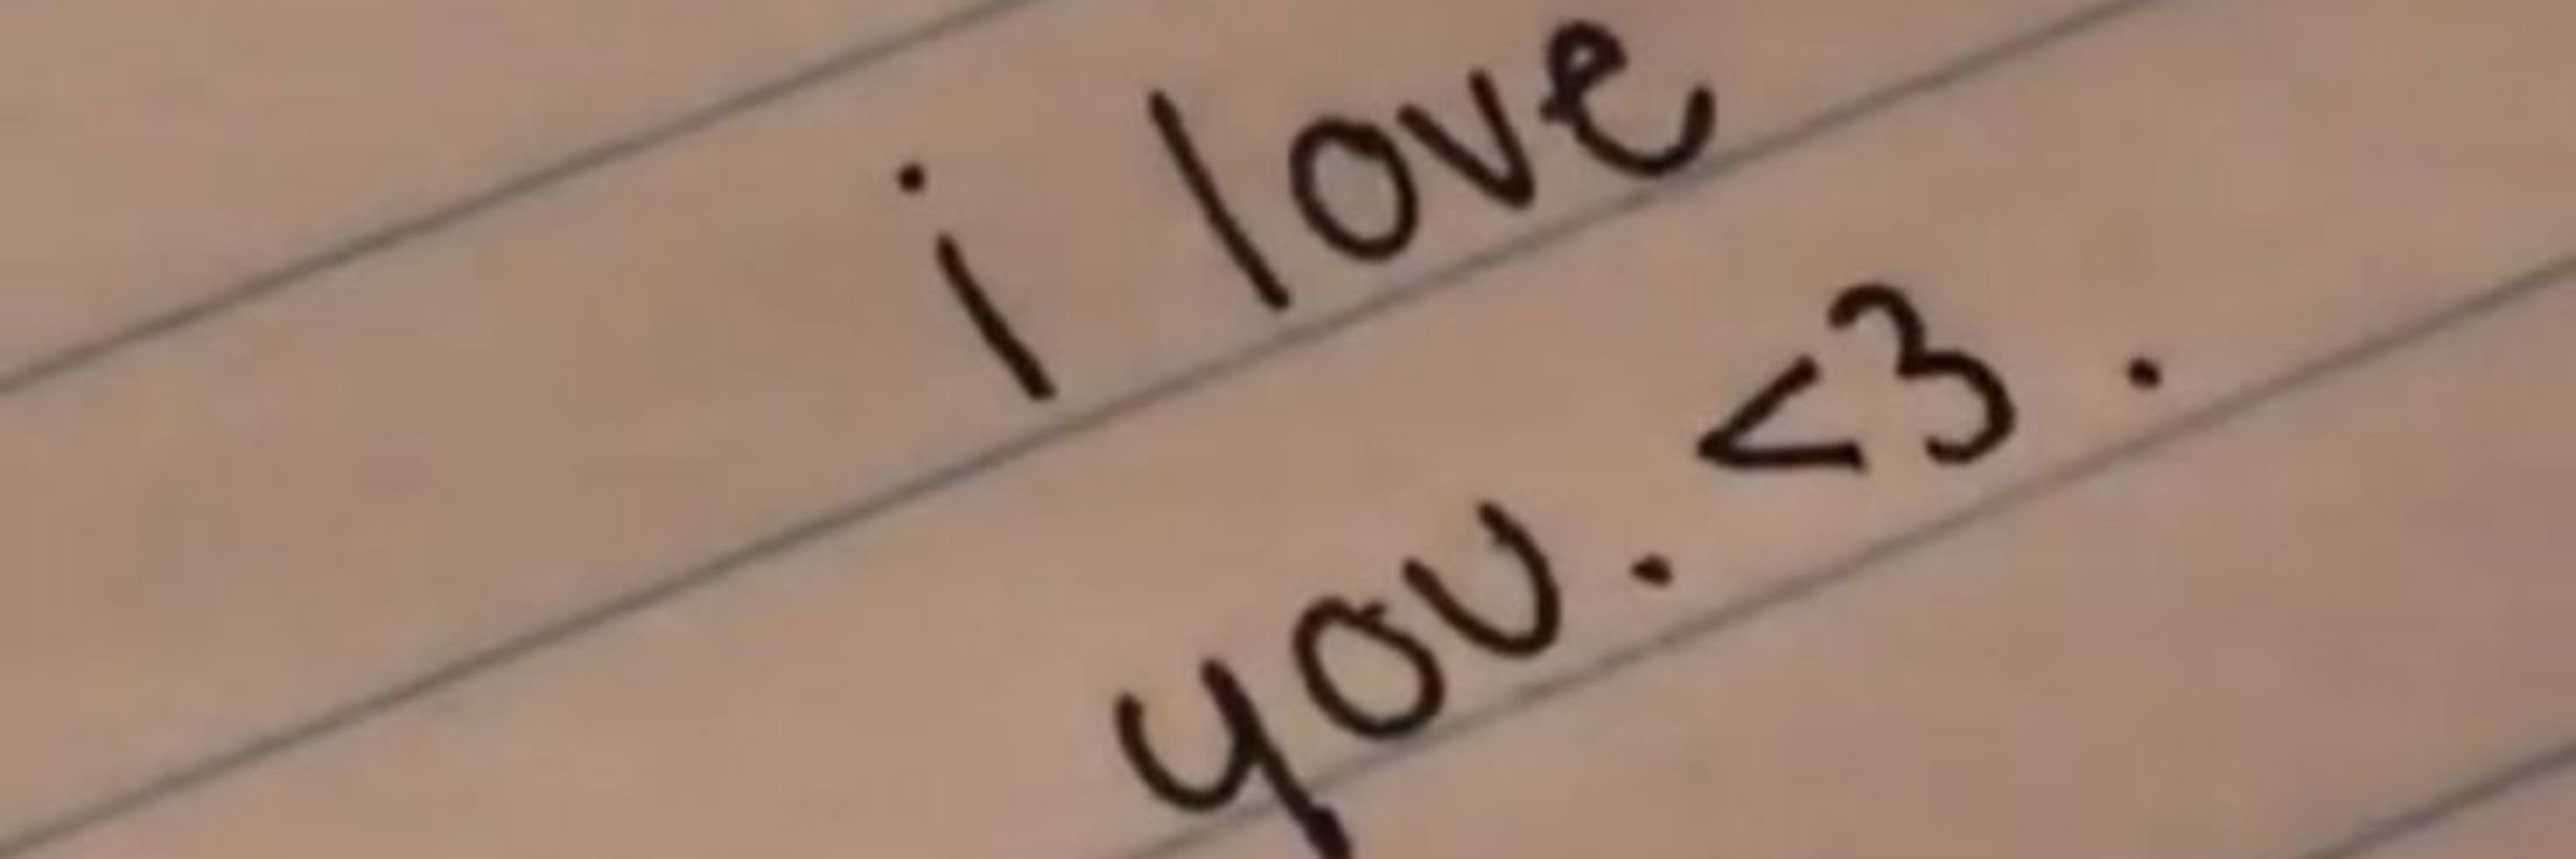 i love
you. <3.